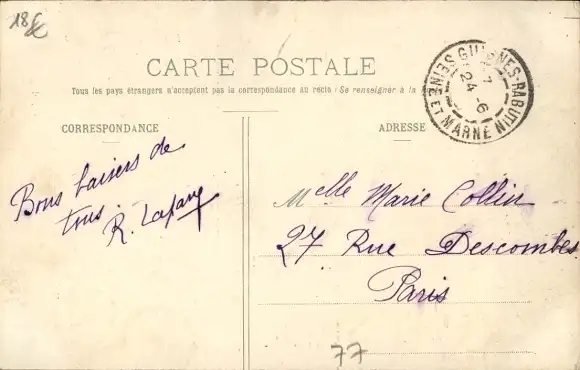 18€
CARTE POSTALE
Tous les pays étrangers n'acceptent pas la correspondance au recto (Se renseigner à la
GUIGNES-RABUTIN
SEINE ET MARNE
7
24-6
CORRESPONDANCE
ADRESSE
Bons baisers de
tous.
R.
Melle Marie Collin
27 Rue Descombes
Paris
77